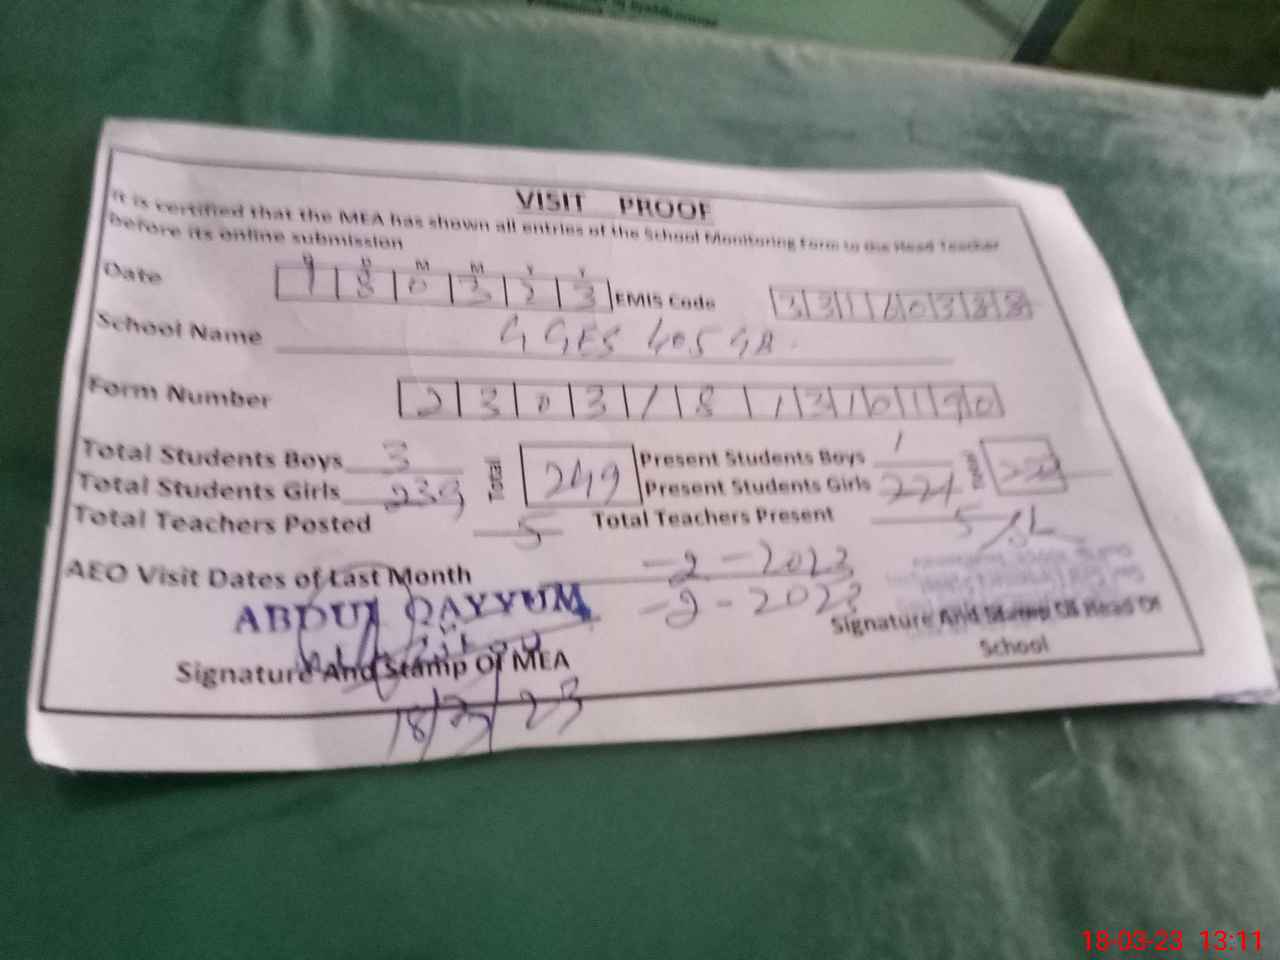 VISIT PROOF
It is certified that the MEA has shown all entries of the School Monitoring Form to the Head Teacher
before its online submission
D D M M Y Y
Date 180323 EMIS Code 33160388
School Name GGES 405 GB
Form Number 2303181310190
Total Students Boys 3 Total 249 Present Students Boys 1
Total Students Girls 239 Present Students Girls 221 Total
Total Teachers Posted 5 Total Teachers Present 5
AEO Visit Dates of Last Month -2-2023
-2-2023
ABDUL QAYYUM
Signature And Stamp Of MEA
Signature And Stamp Of Head Of
School
18/3/23
18-03-23 13:11